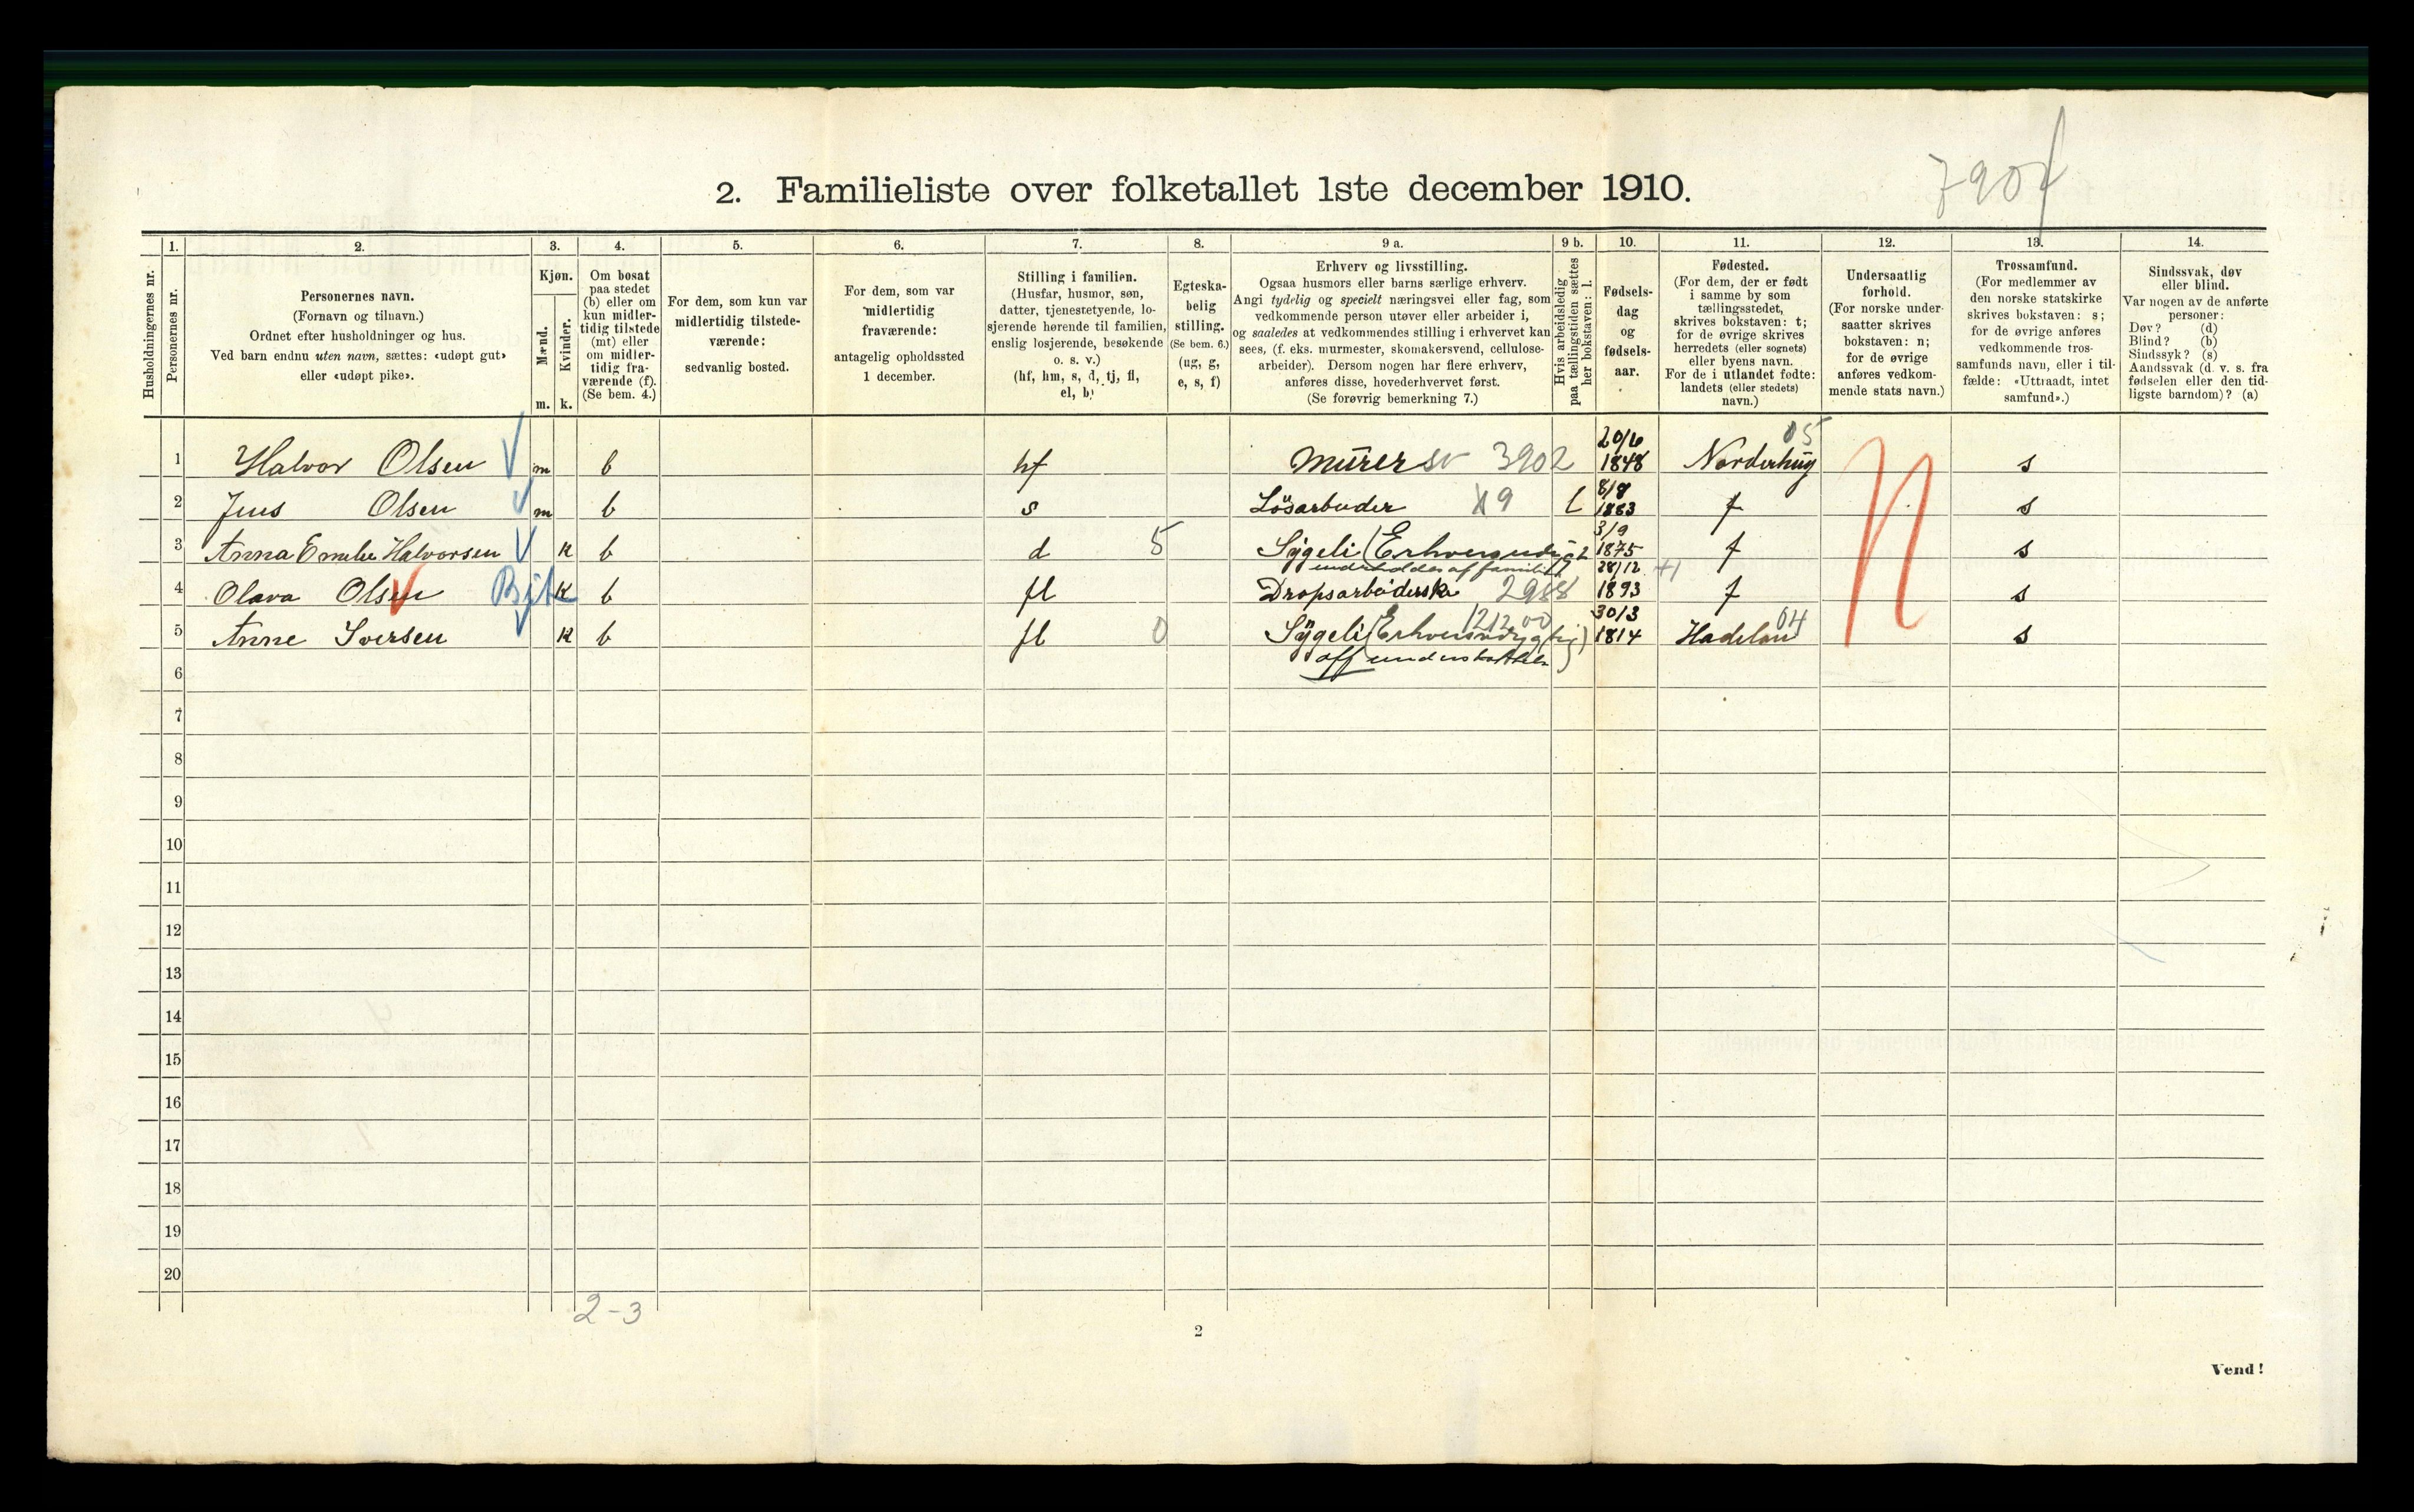 7904
2. Familieliste over folketallet 1ste december 1910.
Husholdningernes nr.
1. Personernes nr.
2. Personernes navn. (Fornavn og tilnavn.) Ordnet efter husholdninger og hus. Ved barn endnu uten navn, sættes: «udøpt gut» eller «udøpt pike».
3. Kjøn. Mænd. m. Kvinder. k.
4. Om bosat paa stedet (b) eller om kun midlertidig tilstede (mt) eller om midlertidig fraværende (f). (Se bem. 4.)
5. For dem, som kun var midlertidig tilstedeværende: sedvanlig bosted.
6. For dem, som var midlertidig fraværende: antagelig opholdssted 1 december.
7. Stilling i familien. (Husfar, husmor, søn, datter, tjenestetyende, losjerende hørende til familien, enslig losjerende, besøkende o. s. v.) (hf, hm, s, d, tj, fl, el, b)
8. Egteskabelig stilling. (Se bem. 6.) (ug, g, e, s, f)
9 a. Erhverv og livsstilling. Ogsaa husmors eller barns særlige erhverv. Angi tydelig og specielt næringsvei eller fag, som vedkommende person utøver eller arbeider i, og saaledes at vedkommendes stilling i erhvervet kan sees, (f. eks. murmester, skomakersvend, cellulosearbeider). Dersom nogen har flere erhverv, anføres disse, hovederhvervet først. (Se forøvrig bemerkning 7.)
9 b. Hvis arbeidsledig paa tællingstiden sættes her bokstaven: l.
10. Fødselsdag og fødselsaar.
11. Fødested. (For dem, der er født i samme by som tællingsstedet, skrives bokstaven: t; for de øvrige skrives herredets (eller sognets) eller byens navn. For de i utlandet fødte: landets (eller stedets) navn.)
12. Undersaatlig forhold. (For norske undersaatter skrives bokstaven: n; for de øvrige anføres vedkommende stats navn.)
13. Trossamfund. (For medlemmer av den norske statskirke skrives bokstaven: s; for de øvrige anføres vedkommende trossamfunds navn, eller i tilfælde: «Uttraadt, intet samfund».)
14. Sindssvak, døv eller blind. Var nogen av de anførte personer: Døv? (d) Blind? (b) Sindssyk? (s) Aandssvak (d. v. s. fra fødselen eller den tidligste barndom)? (a)
1 Halvor Olsen m b hf Murer sv 3902 20/6 1848 Norderhug 05 N s
2 Jens Olsen m b s Lösarbeider 9 l 8/8 1883 t s
3 Anna Emilie Halvorsen k b d 5 Sygeli (Erhvers underholdes af familie 3/9 1875 t s
4 Olava Olsen k b fl Dropsarbeiderske 2988 28/12 1893 t s
5 Anne Iversen k b fl 0 Sygeli (Erhversudygtig) off understøttelse 1212 00 30/3 1814 Hadeland 04 s
6
7
8
9
10
11
12
13
14
15
16
17
18
19
20
2-3
2
Vend!